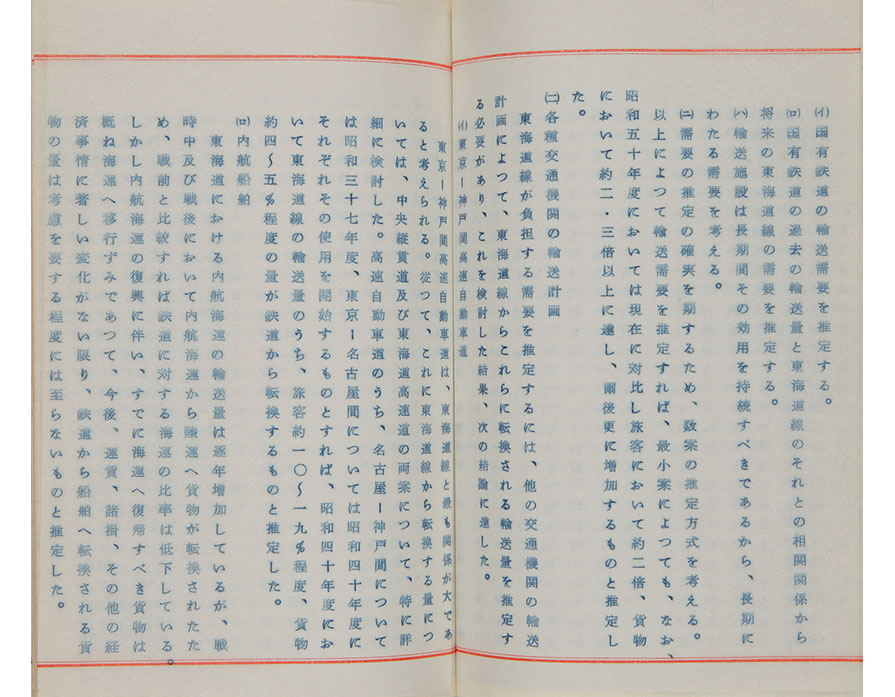 (イ)国有鉄道の輸送需要を推定する。
(ロ)国有鉄道の過去の輸送量と東海道線のそれとの相関関係から
将来の東海道線の需要を推定する。
(ハ)輸送施設は長期間その効用を持続すべきであるから、長期に
わたる需要を考える。
(ニ)需要の推定の確実を期するため、数案の推定方式を考える。
以上によつて輸送需要を推定すれば、最小案によつても、なお、
昭和五十年度においては現在に対比し旅客において約二倍、貨物
において約二・三倍以上に達し、爾後更に増加するものと推定し
た。
(二)各種交通機関の輸送計画
東海道線が負担する需要を推定するには、他の交通機関の輸送
計画によつて、東海道線からこれらに転換される輸送量を推定す
る必要があり、これを検討した結果、次の結論に達した。
(イ)東京ー神戸間高速自動車道
東京ー神戸間高速自動車道は、東海道線と最も関係が大であ
ると考えられる。従つて、これに東海道線から転換する量につ
いては、中央縦貫道及び東海道高速道の両案について、特に詳
細に検討した。高速自動車道のうち、名古屋ー神戸間について
は昭和三十七年度、東京ー名古屋間については昭和四十年度に
それぞれその使用を開始するものとすれば、昭和四十年度にお
いて東海道線の輸送量のうち、旅客約一〇～一九%程度、貨物
約四～五%程度の量が鉄道から転換するものと推定した。
(ロ)内航船舶
東海道における内航海運の輸送量は逐年増加しているが、戦
時中及び戦後において内航海運から陸運へ貨物が転換されたた
め、戦前と比較すれば鉄道に対する海運の比率は低下している。
しかし内航海運の復興に伴い、すでに海運へ復帰すべき貨物は
概ね海運へ移行ずみであつて、今後、運賃、諸掛、その他の経
済事情に著しい変化がない限り、鉄道から船舶へ転換される貨
物の量は考慮を要する程度には至らないものと推定した。